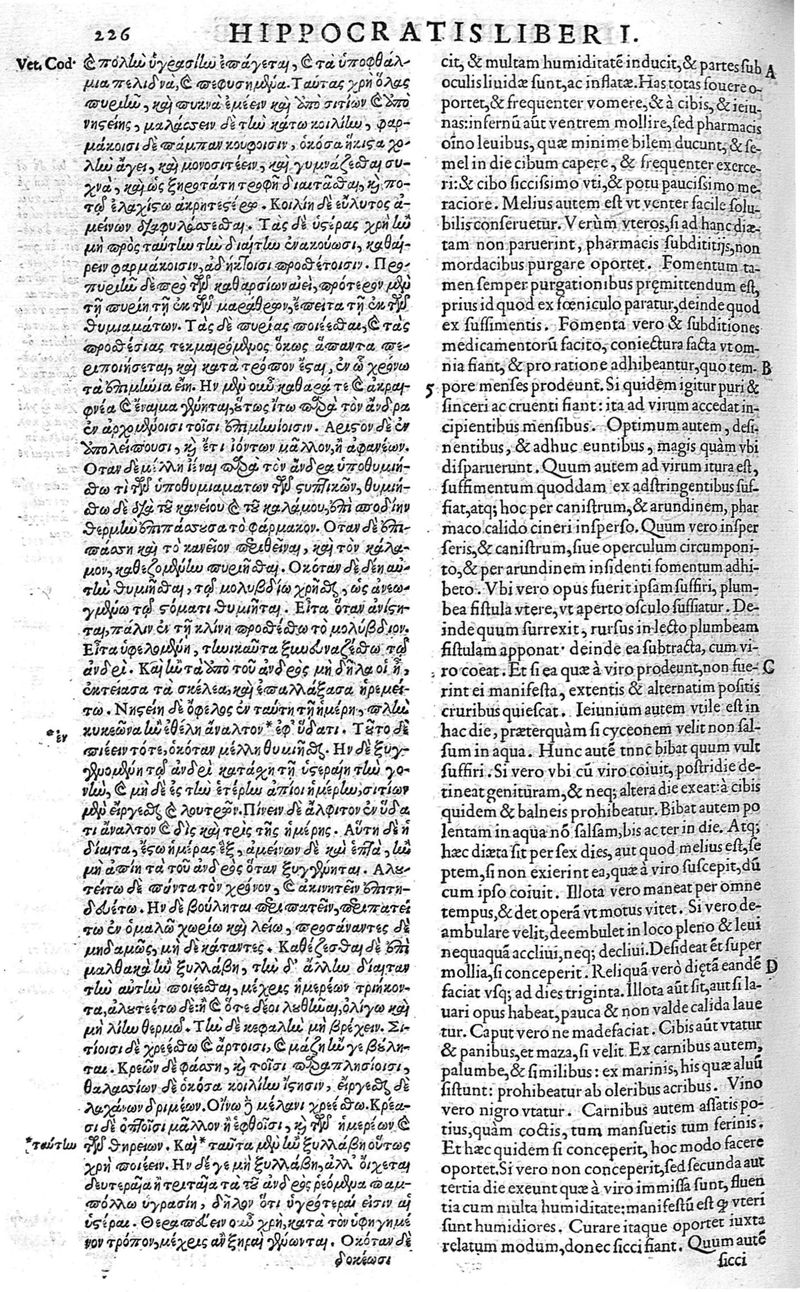 226 HIPPOCRATIS LIBER I.
Vet. Cod.
καὶ πολλὴν ὑγρασίην ἐπάγεται, καὶ τὰ ὑποφθάλ-
μια πελιδνὰ, καὶ πεφυσημένα. Ταύτας χρὴ ὅλας
πυριῆν, καὶ πυκνὰ ἐμέειν καὶ ὑπὸ σιτίων καὶ ὑπὸ
νηστείης, μαλάσσειν δὲ τὴν κάτω κοιλίην, φαρ-
μάκοισι δὲ πάμπαν κουφοισιν, ὁκόσα ἥκιστα χο-
λὴν ἄγει, καὶ μονοσιτέειν, καὶ γυμνάζεσθαι συ-
χνὰ, καὶ ὡς ξηροτάτη τροφῇ διαιτᾶσθαι, καὶ πο-
τῷ ἐλαχίστῳ ἀκρητεστέρῳ. Κοιλίη δὲ εὔλυτος ἀ-
μείνων διαφυλάσσεσθαι. Τὰς δὲ ὑστέρας χρὴ ἢν
μὴ πρὸς ταύτην τὴν δίαιτην ἐνακούωσι, καθαί-
ρειν φαρμάκοισιν, ἀδήκτοισι προσθέτοισιν. Προ-
πυριῆν δὲ πρὸ τῶν καθαρσίων αἰεὶ, πρότερον μὲν
τῇ πυρίῃ τῇ ἐκ τῶν μαράθρων, ἔπειτα τῇ ἐκ τῶν
θυμιαμάτων. Τὰς δὲ πυρίας ποιέεσθαι, καὶ τὰς
προσθέσιας τεκμαιρόμενος ὅκως ἅπαντα πε-
ριποιήσεται, καὶ κατὰ τρόπον ἔσται, ἐν ᾧ χρόνῳ
τὰ ἐπιμήνια εἴη. Ην μὲν οὖν καθαρά τε καὶ ἀκραι-
φνέα καὶ ἔναιμα γένηται, οὕτως ἴτω παρὰ τὸν ἄνδρα
ἐν ἀρχομένοισι τοῖσι ἐπιμηνίοισιν. Αριστον δὲ ἐν
ὑπολείπουσι, καὶ ἔτι ἰόντων μᾶλλον, ἢ ἀφανέων.
Οταν δὲ μέλλῃ ἰέναι παρὰ τὸν ἄνδρα ὑποθυμιή-
σθω τι τῶν ὑποθυμιαμάτων τῶν στυπτικῶν, θυμιή-
σθω δὲ διὰ τοῦ κανείου καὶ τοῦ καλάμου, ἐπὶ σποδιὴν
θερμὴν ἐπιπάσσουσα τὸ φάρμακον. Οταν δὲ ἐπι-
πάσσῃ καὶ τὸ κανεῖον περιθεῖναι, καὶ τὸν κάλα-
μον, καθεζομένην πυριῆσθαι. Οκόταν δὲ δέῃ αὐ-
τὴν θυμιῆσθαι, τῷ μολυβδίῳ χρῆσθαι, ὡς ἀνεῳ-
γμένῳ τῷ στόματι θυμιῆται. Εἶτα ὅταν ἀνίστη-
ται, πάλιν ἐν τῇ κλίνῃ προσθέσθω τὸ μολύβδιον.
Εἶτα ὑφελομένη, τηνικαῦτα ξυνευναζέσθω τῷ
ἀνδρί. Καὶ ἢν τὰ ὑπὸ τοῦ ἀνδρὸς μὴ δῆλα οἱ ᾖ,
ἐκτείνασα τὰ σκέλεα, καὶ ἐπαλλάξασα ἠρεμεί-
τω. Νηστείη δὲ ὄφελος ἐν ταύτῃ τῇ ἡμέρῃ, πλὴν
κυκεῶνα ἢν ἐθέλῃ ἄναλτον * ἐφ' ὕδατι. Τοῦτο δὲ
* ἐν
πιέειν τότε, ὁκόταν μέλλῃ θυμιῆσθαι. Ην δὲ ξυγ-
γενομένη τῷ ἀνδρὶ κατάσχῃ τῇ ὑστεραίῃ τὴν γο-
νὴν, καὶ μὴ δὲ ἐς τὴν ἑτέρην ἀπίοι ἡμέρην, σιτίων
μὲν εἴργεσθαι καὶ λουτρῶν. Πίνειν δὲ ἄλφιτον ἐν ὕδα-
τι ἄναλτον καὶ δὶς καὶ τρὶς τῆς ἡμέρης. Αὕτη δὲ ἡ
δίαιτα, ἔστω ἡμέρας ἓξ, ἀμείνων δὲ καὶ ἑπτὰ, ἢν
μὴ ἀπίῃ τὰ τοῦ ἀνδρὸς ὅταν ξυγγένηται. Αλου-
τείτω δὲ πάντα τὸν χρόνον, καὶ ἀκινητεῖν ἐπιτη-
δευέτω. Ην δὲ βούληται περιπατεῖν, περιπατεί-
τω ἐν ὁμαλῷ χωρίῳ καὶ λείῳ, προσάναντες δὲ
μηδαμῶς, μὴ δὲ κάταντες. Καθέζεσθαι δὲ ἐπὶ
μαλθακὰ ἢν ξυλλάβῃ, τὴν δ' ἄλλην δίαιταν
τὴν αὐτὴν ποιέεσθαι, μέχρις ἡμερέων τριήκον-
τα, ἀλουτείτω δέ· ἢ καὶ ὅτε δέοι λουθῆναι, ὀλίγῳ καὶ
μὴ λίην θερμῷ. Τὴν δὲ κεφαλὴν μὴ βρέχειν. Σι-
τίοισι δὲ χρεέσθω καὶ ἄρτοισι, καὶ μάζῃ ἤν γε βούλη-
ται. Κρεῶν δὲ φάσσῃ, καὶ τοῖσι παραπλησίοισι,
θαλασσίων δὲ ὁκόσα κοιλίην ἵστησιν, εἴργεσθαι δὲ
λαχάνων δριμέων. Οἴνῳ δὲ μέλανι χρεέσθω. Κρέα-
σι δὲ ὀπτοῖσι μᾶλλον ἢ ἑφθοῖσι, καὶ τῶν ἡμέρων καὶ
τῶν θηρείων. Καὶ * ταῦτα μὲν ἢν ξυλλάβῃ οὕτως
* ταύτην
χρὴ ποιέειν. Ην δέ γε μὴ ξυλλάβῃ, ἀλλ' οἴχεται
δευτεραῖα ἢ τριταῖα τὰ τοῦ ἀνδρὸς ῥεόμενα παμ-
πόλλῳ ὑγρασίῃ, δῆλον ὅτι ὑγρότεραι εἰσιν αἱ
ὑστέραι. Θεραπεύειν οὖν χρὴ, κατὰ τὸν ὑφηγημέ
νον τρόπον, μέχρις ἂν ξηραὶ γένωνται. Οκόταν δὲ
δοκέωσι
cit, & multam humiditatē inducit, & partes sub A
oculis liuidæ sunt, ac inflatæ. Has totas fouere o-
portet, & frequenter vomere, & à cibis, & ieiu-
nas: infernū aūt ventrem mollire, sed pharmacis
oīno leuibus, quæ minime bilem ducunt, & se-
mel in die cibum capere, & frequenter exerce-
ri: & cibo siccissimo vti, & potu paucissimo me-
raciore. Melius autem est vt venter facile solu-
bilis conseruetur. Verùm vteros, si ad hanc diæ-
tam non paruerint, pharmacis subdititijs, non
mordacibus purgare oportet. Fomentum ta-
men semper purgationibus pręmittendum est,
prius id quod ex fœniculo paratur, deinde quod
ex suffimentis. Fomenta vero & subditiones
medicamentorū facito, coniectura facta vt om-
nia fiant, & pro ratione adhibeantur, quo tem- B
5 pore menses prodeunt. Si quidem igitur puri &
sinceri ac cruenti fiant: ita ad virum accedat in-
cipientibus mensibus. Optimum autem, desi-
nentibus, & adhuc euntibus, magis quàm vbi
disparuerunt. Quum autem ad virum itura est,
suffimentum quoddam ex adstringentibus suf-
fiat, atq; hoc per canistrum, & arundinem, phar
maco calido cineri insperso. Quum vero insper
seris, & canistrum, siue operculum circumponi-
to, & per arundinem insidenti fomentum adhi-
beto. Vbi vero opus fuerit ipsam suffiri, plum-
bea fistula vtere, vt aperto osculo suffiatur. De-
inde quum surrexit, rursus in lecto plumbeam
fistulam apponat· deinde ea subtracta, cum vi-
ro coeat. Et si ea quæ à viro prodeunt, non fue- C
rint ei manifesta, extentis & alternatim positis
cruribus quiescat. Ieiunium autem vtile est in
hac die, præterquàm si cyceonem velit non sal-
sum in aqua. Hunc autē tnnc bibat quum vult
suffiri. Si vero vbi cū viro coiuit, postridie de-
tineat genituram, & neq; altera die exeat: à cibis
quidem & balneis prohibeatur. Bibat autem po
lentam in aqua nō salsam, bis ac ter in die. Atq;
hæc diæta sit per sex dies, aut quod melius est, se
ptem, si non exierint ea, quæ à viro suscepit, dū
cum ipso coiuit. Illota vero maneat per omne
tempus, & det operā vt motus vitet. Si vero de-
ambulare velit, deembulet in loco pleno & leui
nequaquā accliui, neq; decliui. Desideat ēt super
mollia, si conceperit. Reliquā verò diętā eandē D
faciat vsq; ad dies triginta. Illota aūt sit, aut si la-
uari opus habeat, pauca & non valde calida laue
tur. Caput vero ne madefaciat. Cibis aūt vtatur
& panibus, et maza, si velit. Ex carnibus autem,
palumbe, & similibus: ex marinis, his quæ aluū
sistunt: prohibeatur ab oleribus acribus. Vino
vero nigro vtatur. Carnibus autem assatis po-
tius, quàm coctis, tum mansuetis tum ferinis.
Et hæc quidem si conceperit, hoc modo facere
oportet. Si vero non conceperit, sed secunda aut
tertia die exeunt quæ a viro immissa sunt, fluen
tia cum multa humiditate: manifestū est ꝙ vteri
sunt humidiores. Curare itaque oportet iuxta
relatum modum, donec sicci fiant. Quum autē
sicci